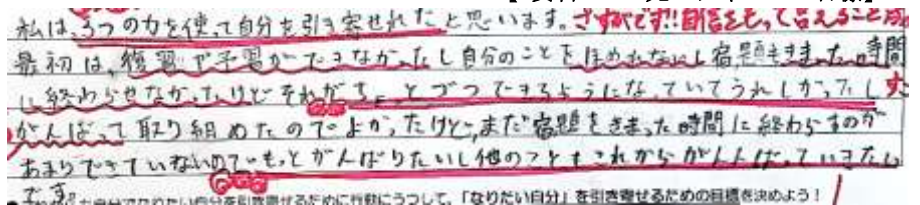 私は、3つの力を使って自分を引き寄せれたと思います。さすがです!!自信をもって言えること
最初は、復習や予習ができなかったし自分のことをほめれないし宿題もきまった時間
に終わらせなかったけどそれがちょっとづつできるようになっていてうれしかったし
がんばって取り組めたのでよかったけど、まだ宿題をきまった時間に終わらすのが
あまりできていないのでもっとがんばりたいし他のこともこれからがんばっていきたい
です。
を引き寄せるために行動にうつして、「なりたい自分」を引き寄せるための目標を決めよう!